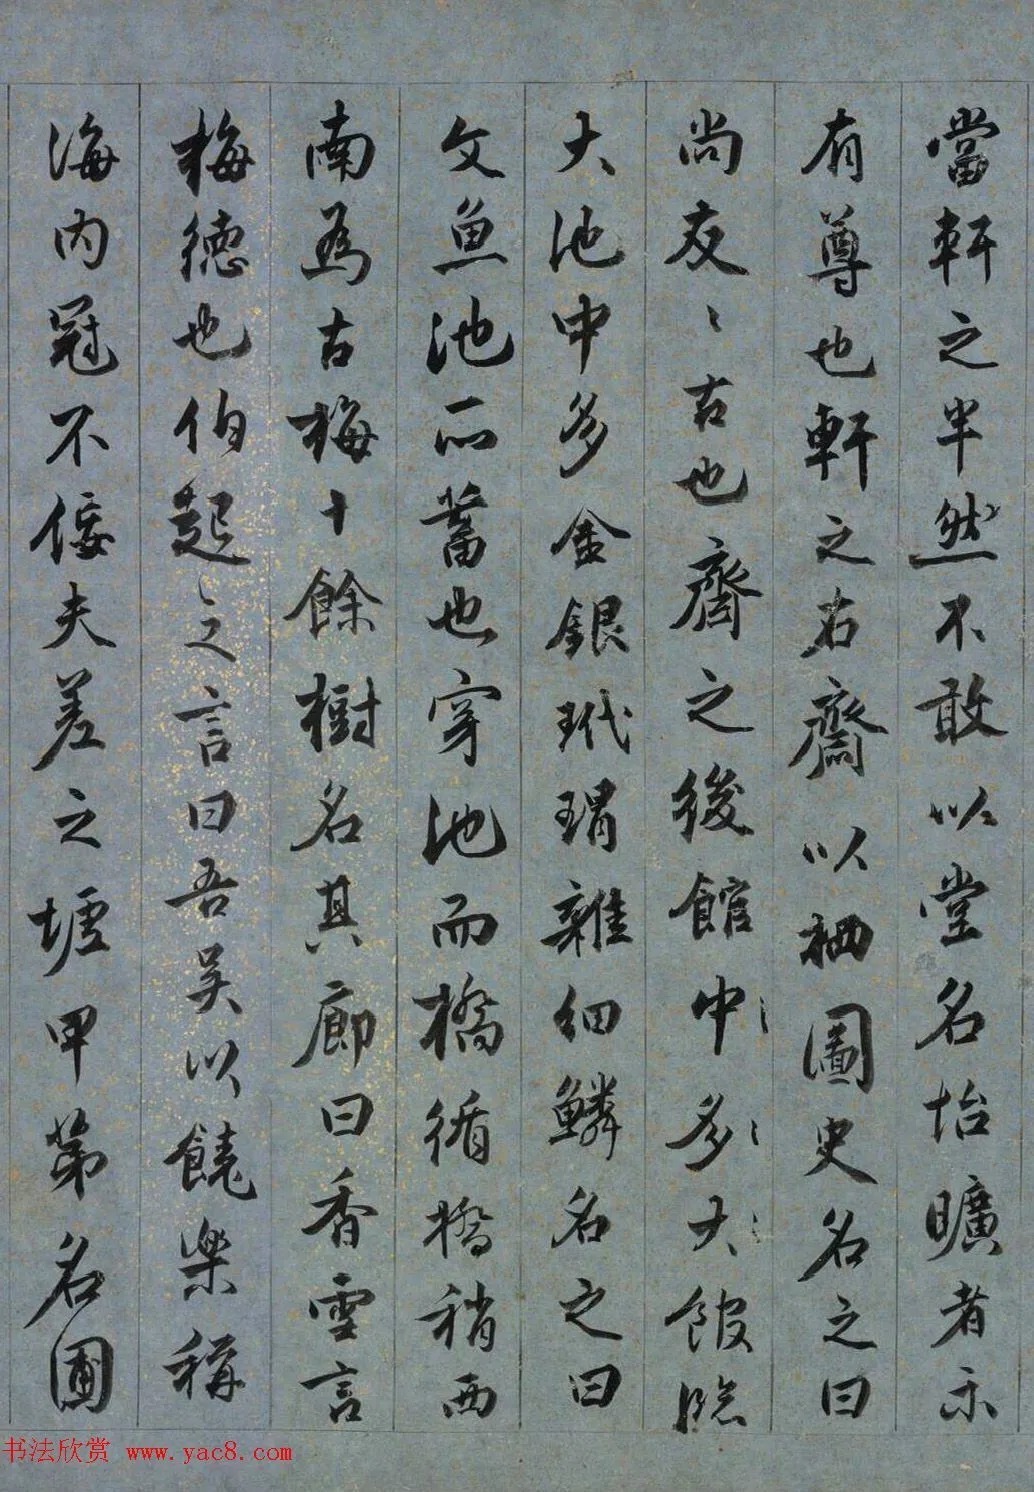 當軒之半然不敢以堂名怡曠者示
有尊也軒之右齋以栖圖史名之曰
尚友〻古也齋之後館中多大館臨
大池中多金銀玳瑁雜細鱗名之曰
文魚池所蓄也穿池而橋循橋稍西
南為古梅十餘樹名其廊曰香雪言
梅德也伯起之言曰吾吳以饒樂稱
海內冠不佞夫差之墟甲第名圃
书法欣赏 www.yac8.com